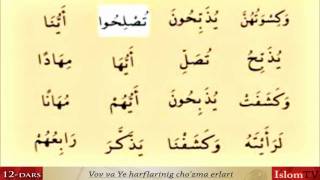 وَكِسْوَتُهُنَّ يُذَبِّحُونَ تُصْلِحُوا أَيُّنَا
يُذَبِّحُ تُصَلِّ أَيُّهَا مِهَادًا
وَكَشَفَتْ يُذَبِّحُونَ أَيُّهُمْ مُهَانًا
لَرَأَيْتَهُ وَكَشَفْنَا يَذَّكَّرَ رَابِعُهُمْ
12-DARS Vov va Ye harflarinig cho'zma erlari IslomTV